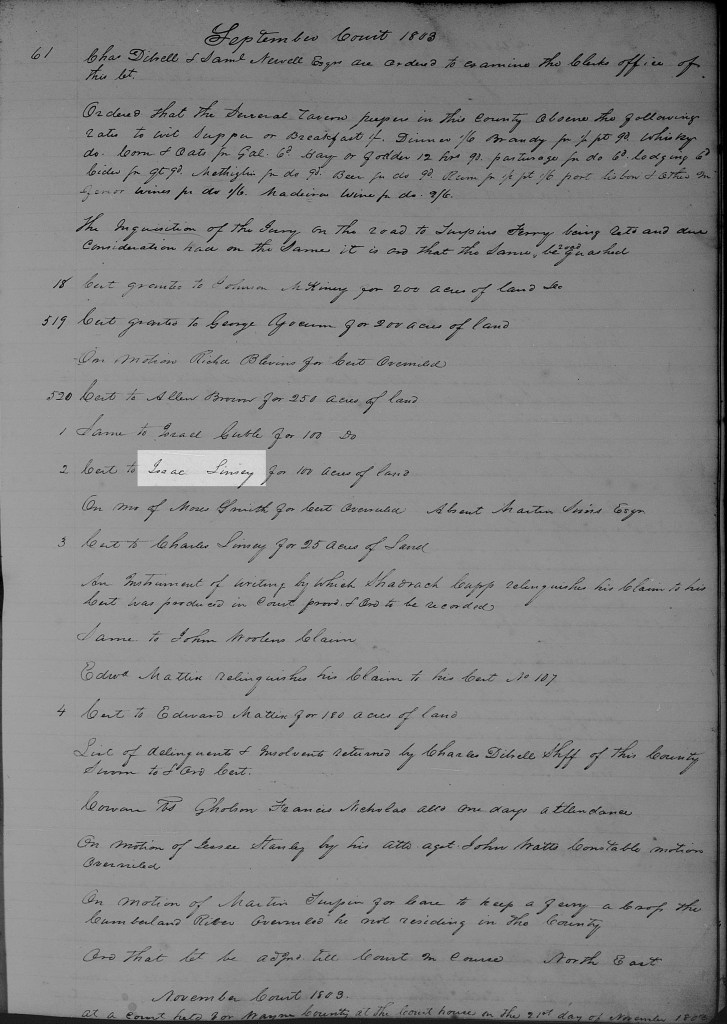 September Court 1803
61 Chas Dibrell & Saml Newell Esqrs are ordered to examine the Clerks office of
this Ct.
Ordered that the Several Tavern keepers in this County observe the following
rates to wit Supper or Breakfast 1/. Dinner 1/6 Brandy pr ½ pt 9d. Whisky
do. Corn & Oats pr Gal. 6d. Hay or fodder 12 hors 9d. pasturage pr do 6d. lodging 6d
Cider pr qt 9d. Methiglin pr do 9d. Beer pr do 9d. Rum pr ½ pt 1/6 port Lisbon & other
wines pr do 1/6. Madeira Wine pr do.
The Inquisition of the Jury on the road to Turpins Ferry being retd and due
Consideration had on the Same it is ord that the Same road be quashed
18 Cert granted to Johnson McKiney for 200 acres of land
519 Cert granted to George Yocum for 200 acres of land
On Motion Richd Blevins for Cert Overruled
520 Cert to Allen Brown for 250 acres of land
1 Same to Israel Cuble for 100 Do
2 Cert to Isaac Linsey for 100 acres of land
On mo of Moses Smith for Cert overruled Absent Martin Sims Esqr
3 Cert to Charles Linsey for 25 acres of Land
An Instrument of writing by which Shadrach Capp relinguishes his Claim to his
Cert was produced in Court provd & Ord to be recorded
Same to John Woolens Claim
Edwd Mattix relinguishes his Claim to his Cert No 107
4 Cert to Edward Mattix for 180 acres of land
List of delinquents & Insolvents returned by Charles Dibrell Shff of this County
Sworn to & Ord Cert.
Cowan vs Gholson Francis Nicholas alld one days attendance
On motion of Jessee Stanley by his atto agst John Watts Constable motion
Overruled
On motion of Martin Turpin for leave to keep a ferry a Crop the
Cumberland River Overruled he not residing in the County
Ord that Ct be adjnd till Court in Course North East
November Court 1803.
At a Court held for Wayne County at the Court house on the 21st day of November 1803